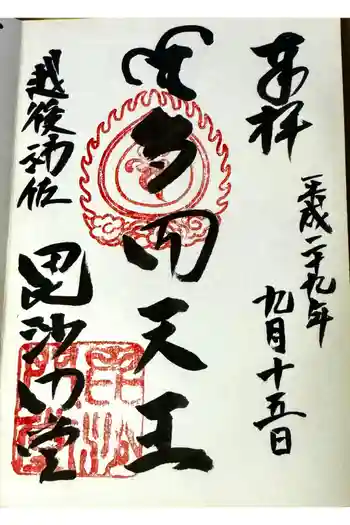 奉拝
平成二十九年
九月十五日
毘沙門天王
越後浦佐
毘沙門堂